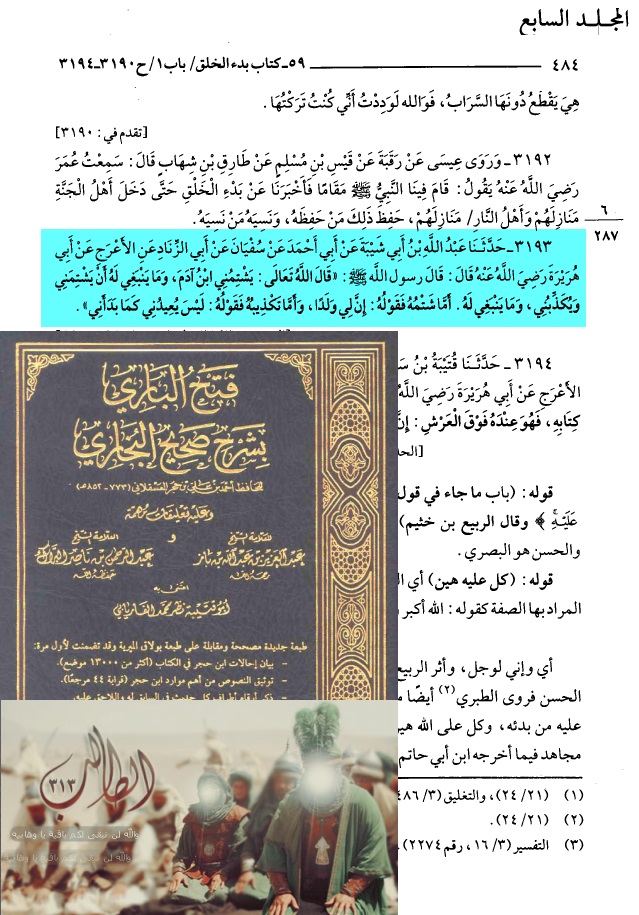 المجلد السابع
٤٨٤ ــــــ ٥٩ـ كتاب بدء الخلق/ باب١/ ح٣١٩٠ـ٣١٩٤
هِيَ يَقْطَعُ دُونَهَا السَّرَابُ، فَوَالله لَوَدِدْتُ أَنِّي كُنْتُ تَرَكْتُهَا.
[تقدم في: ٣١٩٠]
٣١٩٢ـ وَرَوَى عِيسَى عَنْ رَقَبَةَ عَنْ قَيْسِ بْنِ مُسْلِمٍ عَنْ طَارِقِ بْنِ شِهَابٍ قَالَ: سَمِعْتُ عُمَرَ
رَضِيَ اللَّهُ عَنْهُ يَقُولُ: قَامَ فِينَا النَّبِيُّ ﷺ مَقَامًا فَأَخْبَرَنَا عَنْ بَدْءِ الْخَلْقِ حَتَّى دَخَلَ أَهْلُ الْجَنَّةِ
مَنَازِلَهُمْ وَأَهْلُ النَّارِ/ مَنَازِلَهُمْ، حَفِظَ ذَلِكَ مَنْ حَفِظَهُ، وَنَسِيَهُ مَنْ نَسِيَهُ.
٦
٢٨٧
٣١٩٣ـ حَدَّثَنَا عَبْدُ اللَّهِ بْنُ أَبِي شَيْبَةَ عَنْ أَبِي أَحْمَدَ عَنْ سُفْيَانَ عَنْ أَبِي الزِّنَادِ عَنِ الأَعْرَجِ عَنْ أَبِي
هُرَيْرَةَ رَضِيَ اللَّهُ عَنْهُ قَالَ: قَالَ رسول اللَّه ﷺ: «قَالَ اللَّهُ تَعَالَى: يَشْتِمُنِي ابْنُ آدَمَ، وَمَا يَنْبَغِي لَهُ أَنْ يَشْتِمَنِي
وَيُكَذِّبُنِي، وَمَا يَنْبَغِي لَهُ. أَمَّا شَتْمُهُ فَقَوْلُهُ: إِنَّ لِي وَلَدًا، وَأَمَّا تَكْذِيبُهُ فَقَوْلُهُ: لَيْسَ يُعِيدُنِي كَمَا بَدَأَنِي».
٣١٩٤ـ حَدَّثَنَا قُتَيْبَةُ بْنُ
الأَعْرَجِ عَنْ أَبِي هُرَيْرَةَ رَضِيَ اللَّهُ
كِتَابِهِ، فَهُوَ عِنْدَهُ فَوْقَ الْعَرْشِ: إِنَّ
قوله: (باب ما جاء في قول
عَلَيْهِ﴾ وقال الربيع بن خثيم)
والحسن هو البصري.
قوله: (كل عليه هين) أي
المراد بها الصفة كقوله: الله أكبر
أي وإني لوجل، وأثر الربيع
الحسن فروى الطبري(٢) أيضًا
عليه من بدئه، وكل على الله
مجاهد فيما أخرجه ابن أبي حاتم
(١) (٢١/ ٢٤)، والتغليق (٣/ ٤٨٦
(٢) (٢١/ ٢٤).
(٣) التفسير (٣/ ١٦، رقم ٢٢٧٤)
فتح الباري
بشرح صحيح البخاري
للحافظ أحمد بن علي بن حجر العسقلاني (٧٧٣ - ٨٥٢ هـ)
وعليه تعليقات مهمة
للعلامة الشيخ
عبد العزيز بن عبد الله بن باز
رحمه الله
و
العلامة الشيخ
عبد الرحمن بن ناصر البراك
حفظه الله
اعتنى به
أبو قتيبة نظر محمد الفاريابي
طبعة جديدة مصححة ومقابلة على طبعة بولاق الميرية وقد تضمنت لأول مرة:
- بيان إحالات ابن حجر في الكتاب (أكثر من ١٣٠٠٠ موضع).
- توثيق النصوص من أهم موارد ابن حجر (قرابة ٤٤ مرجعًا).
- ذكر أرقام أطراف كل حديث في السابق له واللاحق عليه.
الطالب
٣١٣
والله لن تبقى لكم باقية يا وهابية
والله لن تبقى لكم باقية يا وهابية